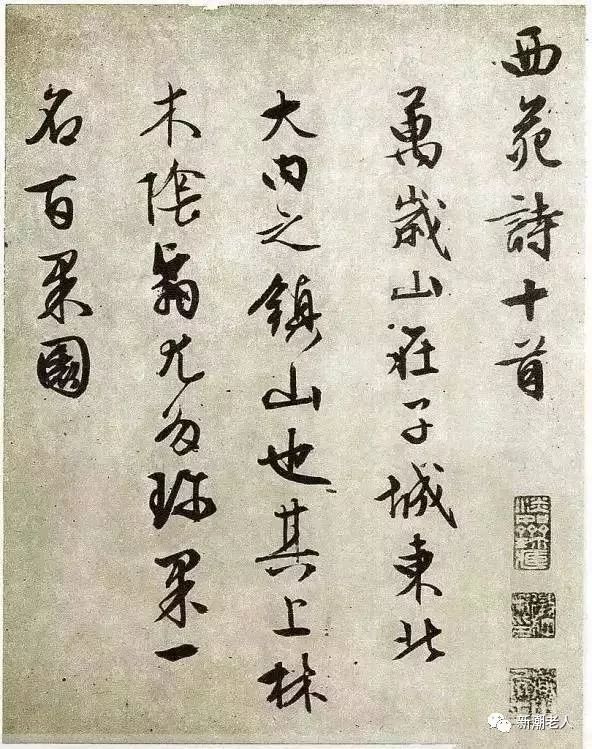 西苑詩十首
萬歲山在子城東北
大内之鎮山也其上林
木陰翳尤多珎果一
名百果園
新潮老人